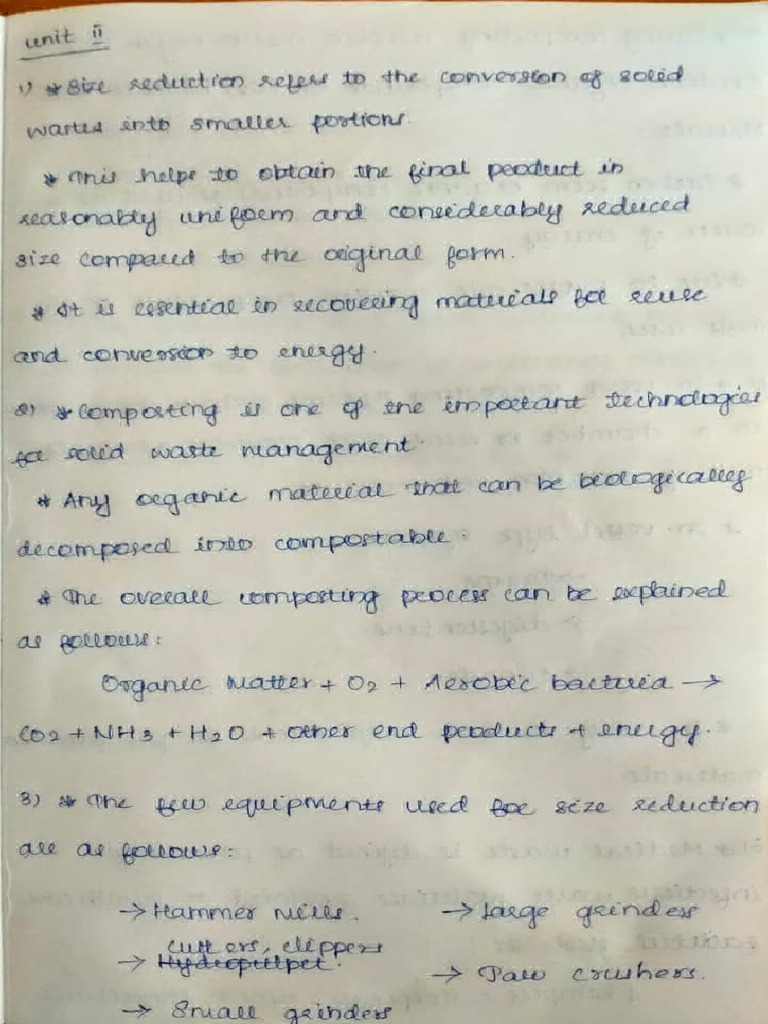 unit II
1) * Size reduction refers to the conversion of solid
wastes into smaller portions.
* This helps to obtain the final product in
reasonably uniform and considerably reduced
size compared to the original form.
* It is essential in recovering materials for reuse
and conversion to energy.
2) * Composting is one of the important technologies
for solid waste management
* Any organic material that can be biologically
decomposed into compostable.
* The overall composting process can be explained
as follows:
Organic Matter + O2 + Aerobic bacteria →
CO2 + NH3 + H2O + other end products + energy.
3) * The few equipments used for size reduction
are as follows:
→ Hammer Mills. → Large grinders
cutters, clippers
→ Hydropulper. → Jaw crushers.
→ Small grinders